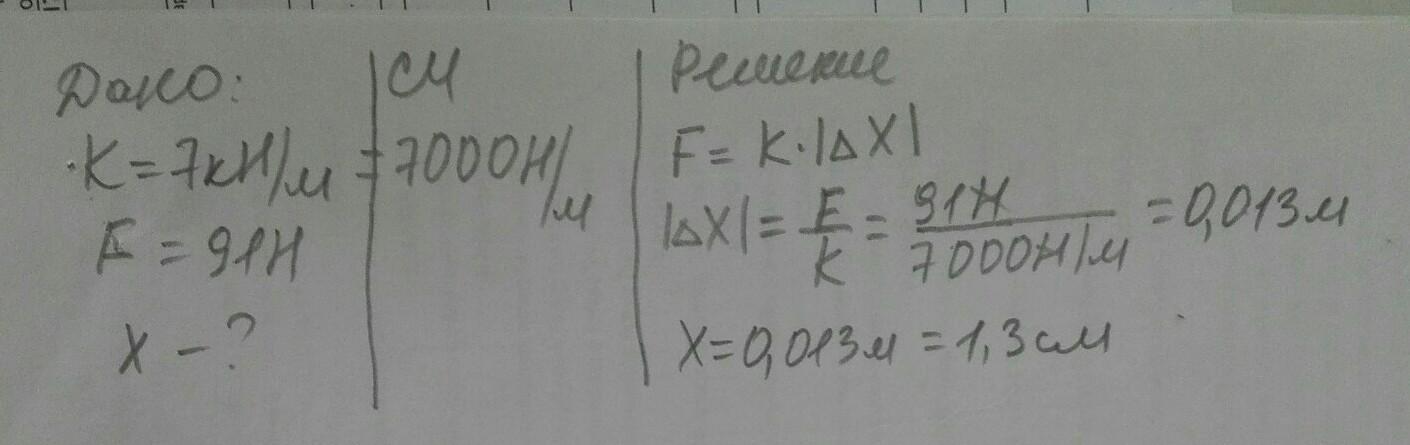 Дано:
К = 7кН/м
F = 91Н
X - ?
СИ
= 7000Н/м
Решение
F = К·|ΔX|
|ΔX| = F/К = 91Н/7000Н/м = 0,013м
X = 0,013м = 1,3см